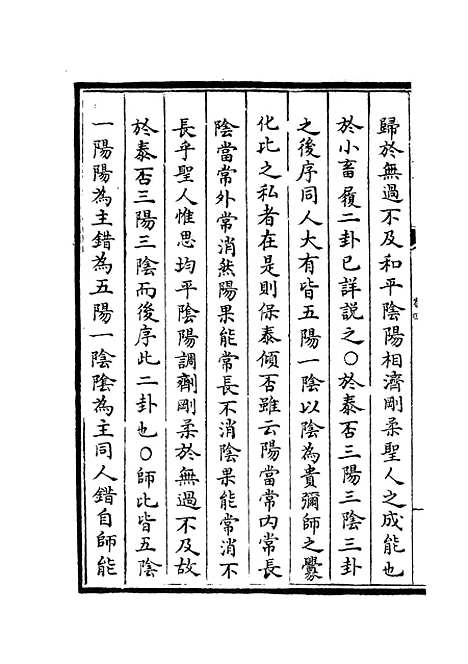 歸於無過不及和平陰陽相濟剛柔聖人之成能也
於小畜履二卦已詳說之○於泰否三陽三陰三卦
之後序同人大有皆五陽一陰以陰為貴彌師之釁
化比之私者在是則保泰傾否雖云陽當常内常長
陰當常外常消然陽果能常長不消陰果能常消不
長乎聖人惟思均平陰陽調劑剛柔於無過不及故
於泰否三陽三陰而後序此二卦也○師比皆五陰
一陽陽為主錯為五陽一陰陰為主同人錯自師能